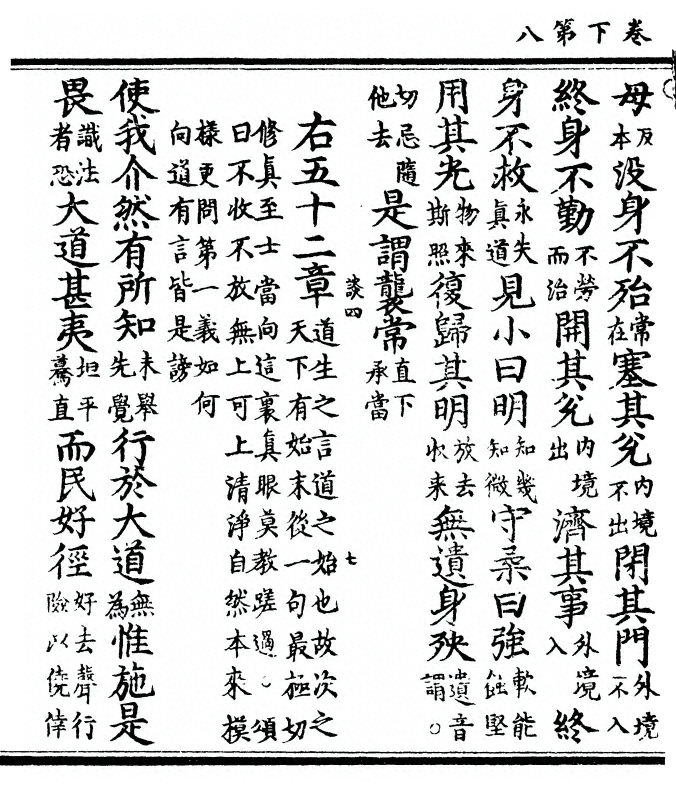 卷下第八
母反本没身不殆常在塞其兌內境不出閉其門外境不入
終身不勤不勞而治開其兌內境出濟其事外境入終
身不救永失真道見小曰明知幾知微守柔曰強軟能蝕堅
用其光物來斯照復歸其明放去收來無遺身殃遺音謂○
切忌隨他去是謂襲常直下承當
右五十二章道生之言道之始也故次之天下有始末從一句最極切
談四
七
修眞至士當向這裏眞眼莫教蹉過○頌
曰不收不放無上可上清淨自然本來摸
樣更問第一義如何
向道有言皆是謗
使我介然有所知未舉先覺行於大道無為惟施是
畏識法者恐大道甚夷坦平驀直而民好徑好去聲行險以僥倖